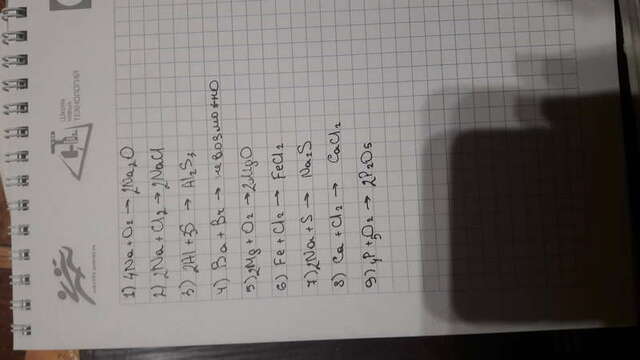 Школа
новых
ТЕХНОЛОГИЙ
1) 4Na+O2 → 2Na2O
2) 2Na+Cl2 → 2NaCl
3) 2Al+3S → Al2S3
4) Ba+Br → невозможно
5) 2Mg+O2 → 2MgO
6) Fe+Cl2 → FeCl2
7) 2Na+S → Na2S
8) Ca+Cl2 → CaCl2
9) 4P+5O2 → 2P2O5